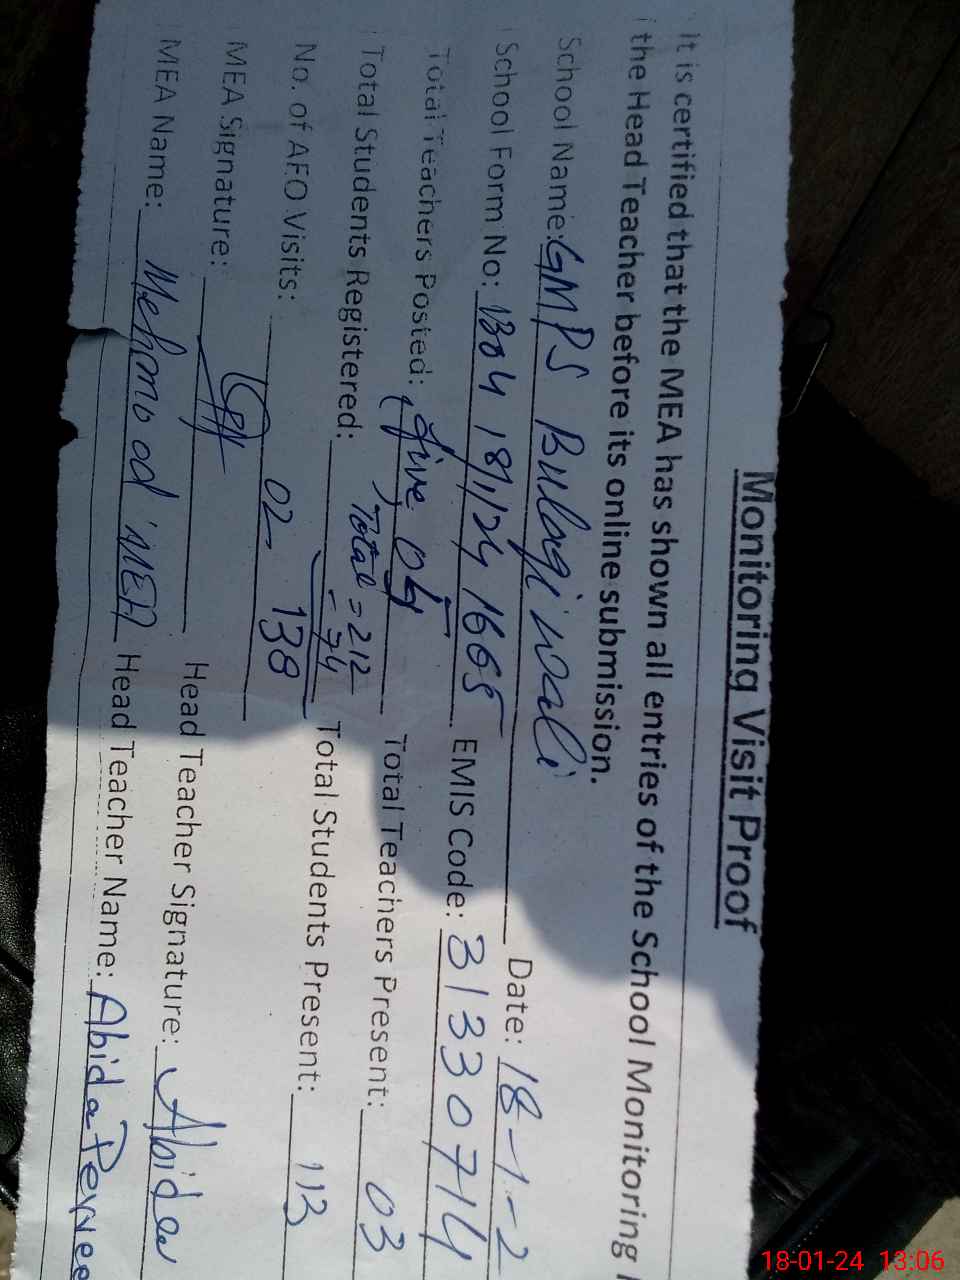 Monitoring Visit Proof
It is certified that the MEA has shown all entries of the School Monitoring
the Head Teacher before its online submission.
School Name: GMPS Bulaqi wali Date: 18-1-2
School Form No: 1304 18/1/24 1665 EMIS Code: 31330714
Total Teachers Posted: (five) 05 Total Teachers Present: 03
Total Students Registered: Total = 212 - 74 Total Students Present: 113
138
No. of AEO Visits: 02
MEA Signature: Head Teacher Signature: Abida
MEA Name: Mehmood MEA Head Teacher Name: Abida Pervee
18-01-24 13:06